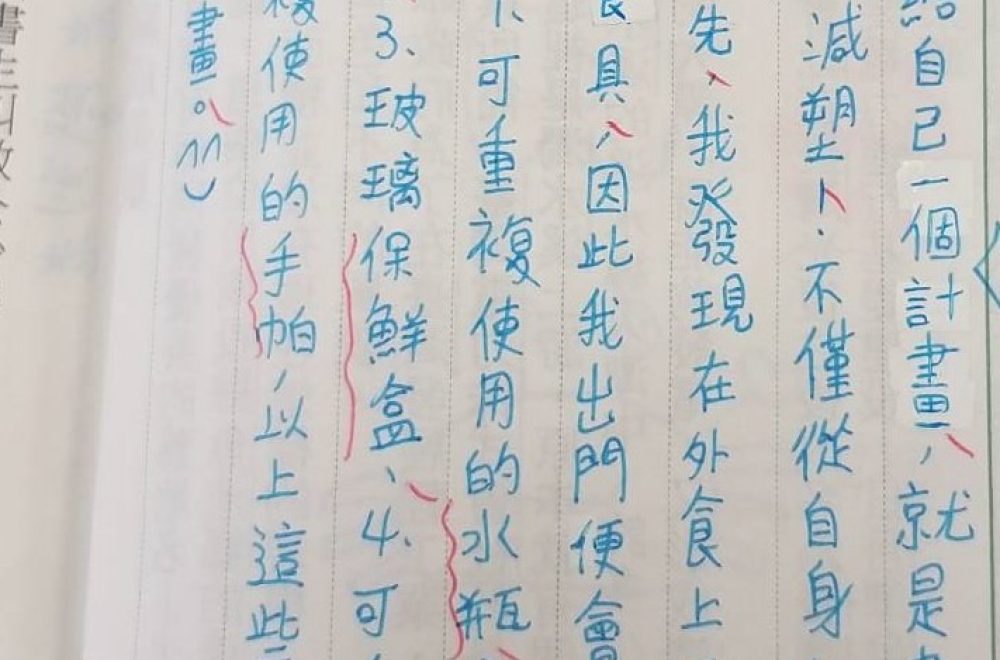 自己一個計畫，就是
減塑」。不僅從自身
先，我發現在外食上
具，因此我出門便會
1、可重複使用的水瓶
3、玻璃保鮮盒、4、可
使用的手帕，以上這些
畫。^^)